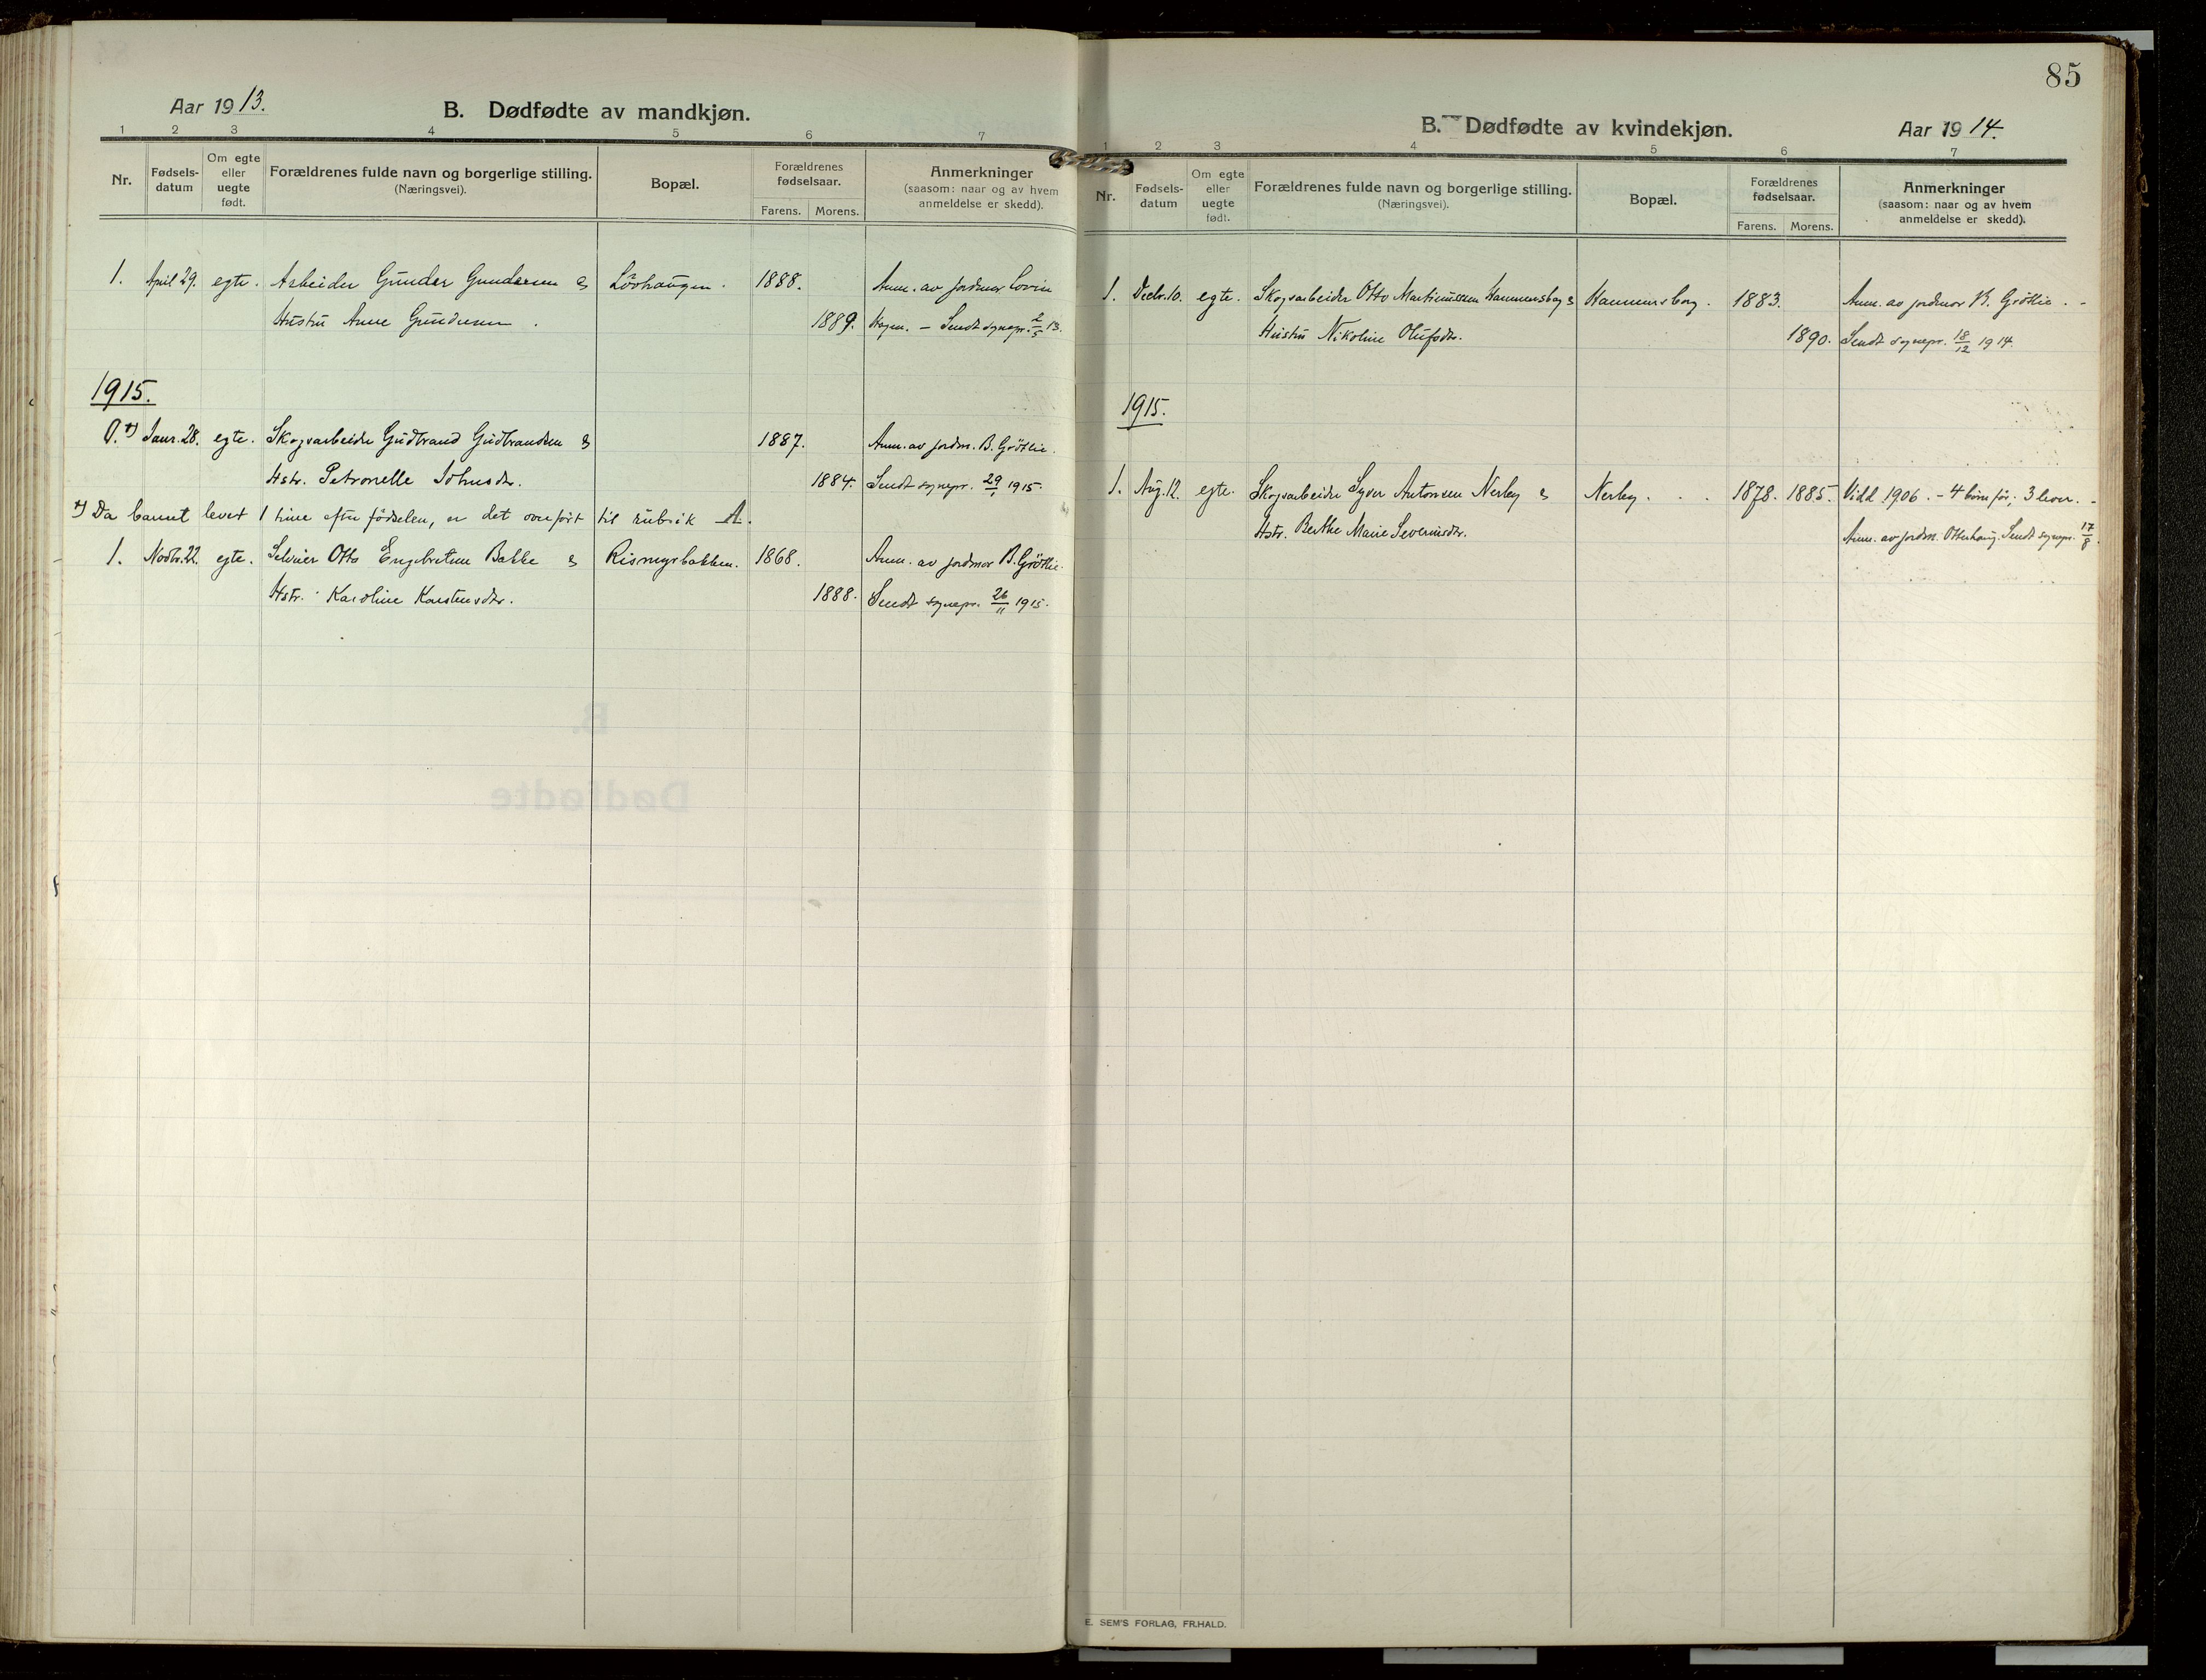 Aar 1913.
B. Dødfødte av mandkjøn.
1 2 3 4 5 6 7
Nr.
Fødsels-
datum
Om egte
eller
uegte
født.
Forældrenes fulde navn og borgerlige stilling.
(Næringsvei).
Bopæl.
Forældrenes
fødselsaar.
Farens. Morens.
Anmerkninger
(saasom: naar og av hvem
anmeldelse er skedd).
1. April 29. egte. Arbeider Gunder Gundersen & Lövhaugen. 1888. Anm. av jordmor Lovise
Hustru Anne Gundersen. 1889. Hagen. – Sendt sognepr. 2/5 13.
1915.
0. *) Janr. 28. egte. Skogsarbeider Gudbrand Gudbrandsen & 1887. Anm. av jordm. B. Gröttie.
Hstr. Petronelle Johnsdr. 1884. Sendt sognepr. 29/1 1915.
*) Da barnet levet 1 time efter födselen, er det overfört til rubrik A.
1. Novbr. 22. egte. Selveier Otto Engebretsen Bakke & Rismyrbakken. 1868. Anm. av jordmor B. Gröttie.
Hstr. Karoline Karstensdr. 1888. Sendt sognepr. 26/11 1915.
85
B. Dødfødte av kvindekjøn.
Aar 1914.
1 2 3 4 5 6 7
Nr.
Fødsels-
datum
Om egte
eller
uegte
født.
Forældrenes fulde navn og borgerlige stilling.
(Næringsvei).
Bopæl.
Forældrenes
fødselsaar.
Farens. Morens.
Anmerkninger
(saasom: naar og av hvem
anmeldelse er skedd).
1. Decbr. 10. egte. Skogsarbeider Otto Martinussen Hammersborg & Hammersborg. 1883. Anm. av jordmor B. Gröttie. -
Hustru Nikoline Olufsdr. 1890. Sendt sognepr. 18/12 1914.
1915.
1. Aug. 12. egte. Skogsarbeider Syver Antonsen Nerby & Nerby. 1878. 1885. Vidd 1906. – 4 börn för; 3 lever. -
Hstr. Berthe Marie Severinsdr. Anm. av jordm. Otterhaug. Sendt sognepr. 17/8.
E. SEM'S FORLAG, FR.HALD.